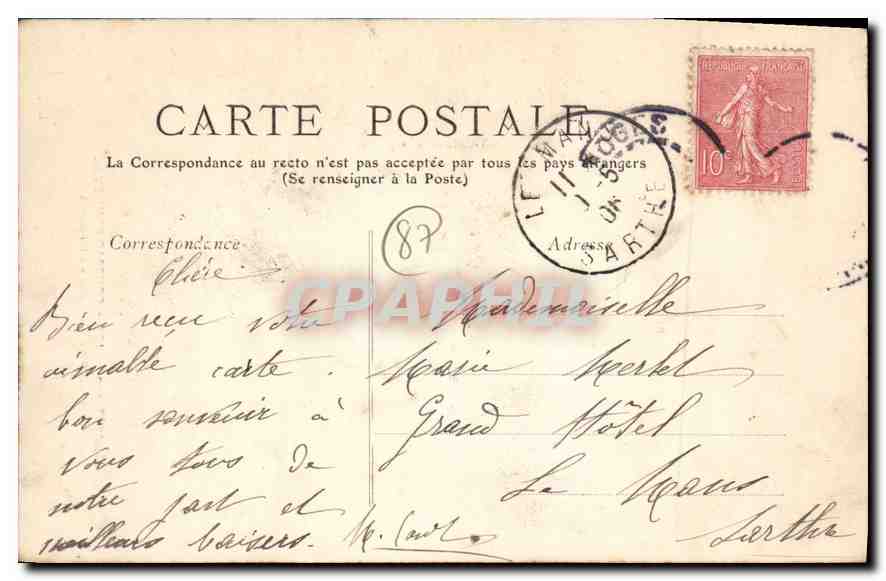 CARTE POSTALE
La Correspondance au recto n'est pas acceptée par tous les pays étrangers
(Se renseigner à la Poste)
RÉPUBLIQUE FRANÇAISE
10c
LE MANS
11
5
06
SARTHE
Correspondance
87
Adresse
CPAPHIL
Chère
Bien reçu votre
aimable carte.
bon souvenir à
vous tous de
notre part et
meilleurs baisers.
Mademoiselle
Marie Merkel
Grand Hôtel
Le Mans
Sarthe